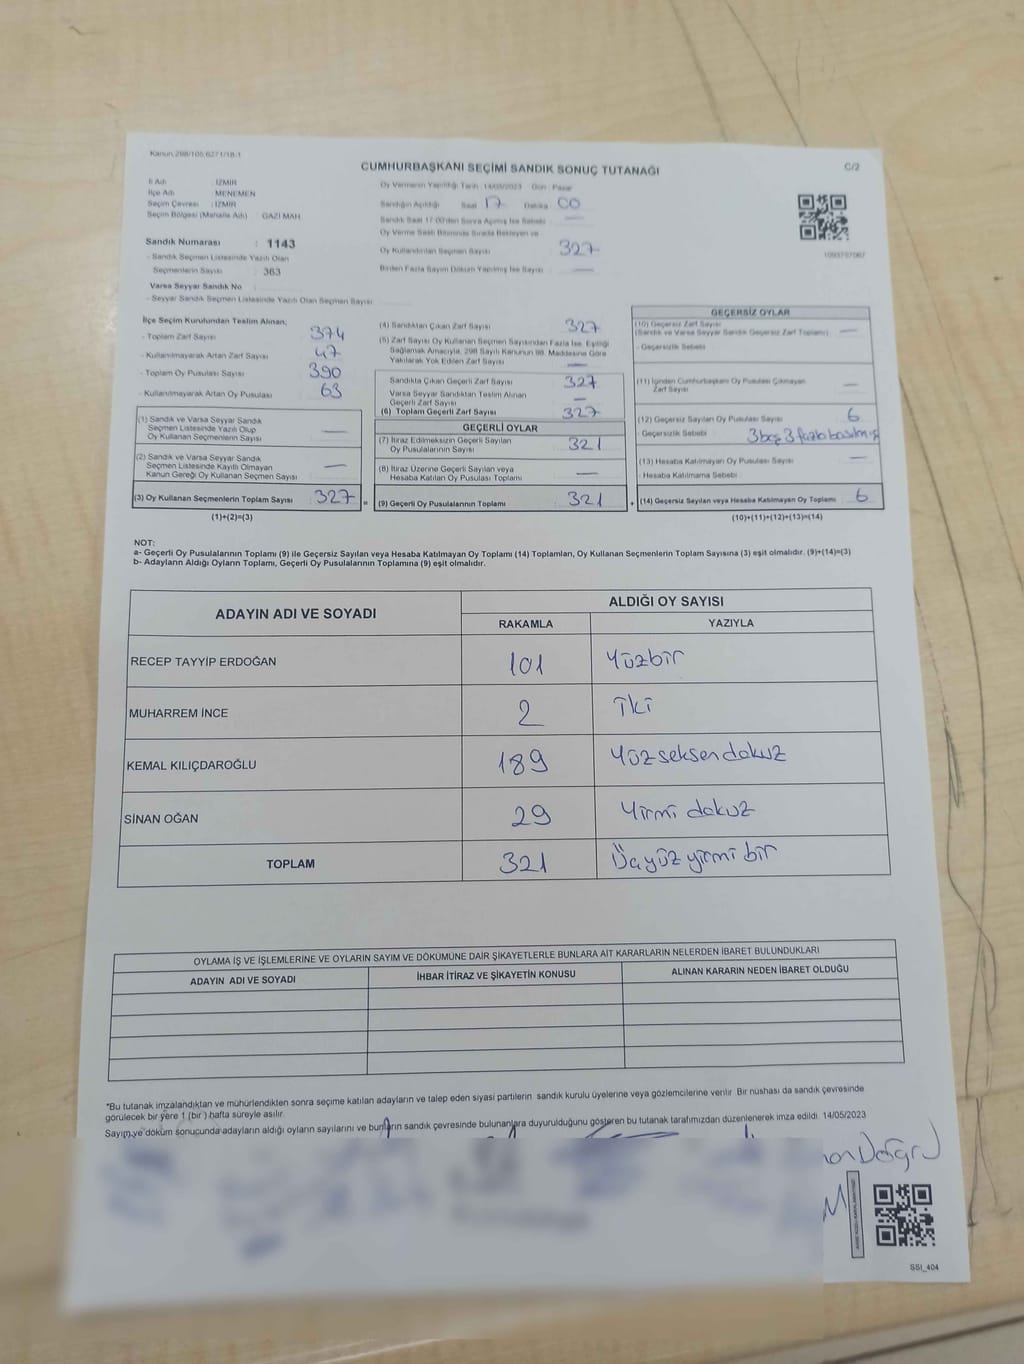 Kanun:298/105;6271/18:1
CUMHURBAŞKANI SEÇİMİ SANDIK SONUÇ TUTANAĞI
C/2
İl Adı : İZMİR
İlçe Adı : MENEMEN
Seçim Çevresi : İZMİR
Seçim Bölgesi (Mahalle Adı) : GAZİ MAH
Sandık Numarası : 1143
- Sandık Seçmen Listesinde Yazılı Olan
Seçmenlerin Sayısı : 363
Varsa Seyyar Sandık No :
- Seyyar Sandık Seçmen Listesinde Yazılı Olan Seçmen Sayısı:
Oy Vermenin Yapıldığı Tarih : 14/05/2023 Gün : Pazar
Sandığın Açıldığı Saat 17 Dakika 00
Sandık Saat 17:00'den Sonra Açılmış İse Sebebi —
Oy Verme Saati Bitiminde Sırada Bekleyen ve
Oy Kullandırılan Seçmen Sayısı 327
Birden Fazla Sayım Döküm Yapılmış İse Sayısı —
İlçe Seçim Kurulundan Teslim Alınan;
- Toplam Zarf Sayısı 374
- Kullanılmayarak Artan Zarf Sayısı 47
- Toplam Oy Pusulası Sayısı 390
- Kullanılmayarak Artan Oy Pusulası 63
(1) Sandık ve Varsa Seyyar Sandık
Seçmen Listesinde Yazılı Olup
Oy Kullanan Seçmenlerin Sayısı —
(2) Sandık ve Varsa Seyyar Sandık
Seçmen Listesinde Kayıtlı Olmayan
Kanun Gereği Oy Kullanan Seçmen Sayısı —
(3) Oy Kullanan Seçmenlerin Toplam Sayısı 327 =
(1)+(2)=(3)
(4) Sandıktan Çıkan Zarf Sayısı 327
(5) Zarf Sayısı Oy Kullanan Seçmen Sayısından Fazla İse, Eşitliği
Sağlamak Amacıyla, 298 Sayılı Kanunun 98. Maddesine Göre
Yakılarak Yok Edilen Zarf Sayısı —
Sandıkta Çıkan Geçerli Zarf Sayısı 327
Varsa Seyyar Sandıktan Teslim Alınan
Geçerli Zarf Sayısı —
(6) Toplam Geçerli Zarf Sayısı 327
GEÇERLİ OYLAR
(7) İtiraz Edilmeksizin Geçerli Sayılan
Oy Pusulalarının Sayısı 321
(8) İtiraz Üzerine Geçerli Sayılan veya
Hesaba Katılan Oy Pusulası Toplamı —
(9) Geçerli Oy Pusulalarının Toplamı 321 +
GEÇERSİZ OYLAR
(10) Geçersiz Zarf Sayısı
(Sandık ve Varsa Seyyar Sandık Geçersiz Zarf Toplamı) —
- Geçersizlik Sebebi
(11) İçinden Cumhurbaşkanı Oy Pusulası Çıkmayan
Zarf Sayısı —
(12) Geçersiz Sayılan Oy Pusulası Sayısı 6
- Geçersizlik Sebebi 3 boş 3 fazla basılmış
(13) Hesaba Katılmayan Oy Pusulası Sayısı —
- Hesaba Katılmama Sebebi
(14) Geçersiz Sayılan veya Hesaba Katılmayan Oy Toplamı 6
(10)+(11)+(12)+(13)=(14)
NOT:
a- Geçerli Oy Pusulalarının Toplamı (9) ile Geçersiz Sayılan veya Hesaba Katılmayan Oy Toplamı (14) Toplamları, Oy Kullanan Seçmenlerin Toplam Sayısına (3) eşit olmalıdır. (9)+(14)=(3)
b- Adayların Aldığı Oyların Toplamı, Geçerli Oy Pusulalarının Toplamına (9) eşit olmalıdır.
ADAYIN ADI VE SOYADI ALDIĞI OY SAYISI
RAKAMLA YAZIYLA
RECEP TAYYİP ERDOĞAN 101 Yüzbir
MUHARREM İNCE 2 İki
KEMAL KILIÇDAROĞLU 189 Yüzseksendokuz
SİNAN OĞAN 29 Yirmi dokuz
TOPLAM 321 Üçyüz yirmi bir
OYLAMA İŞ VE İŞLEMLERİNE VE OYLARIN SAYIM VE DÖKÜMÜNE DAİR ŞİKAYETLERLE BUNLARA AİT KARARLARIN NELERDEN İBARET BULUNDUKLARI
ADAYIN ADI VE SOYADI İHBAR İTİRAZ VE ŞİKAYETİN KONUSU ALINAN KARARIN NEDEN İBARET OLDUĞU
*Bu tutanak imzalandıktan ve mühürlendikten sonra seçime katılan adayların ve talep eden siyasi partilerin sandık kurulu üyelerine veya gözlemcilerine verilir. Bir nüshası da sandık çevresinde
görülecek bir yere 1 (bir ) hafta süreyle asılır.
Sayım ve döküm sonucunda adayların aldığı oyların sayılarını ve bunların sandık çevresinde bulunanlara duyurulduğunu gösteren bu tutanak tarafımızdan düzenlenerek imza edildi. 14/05/2023
SSI_404